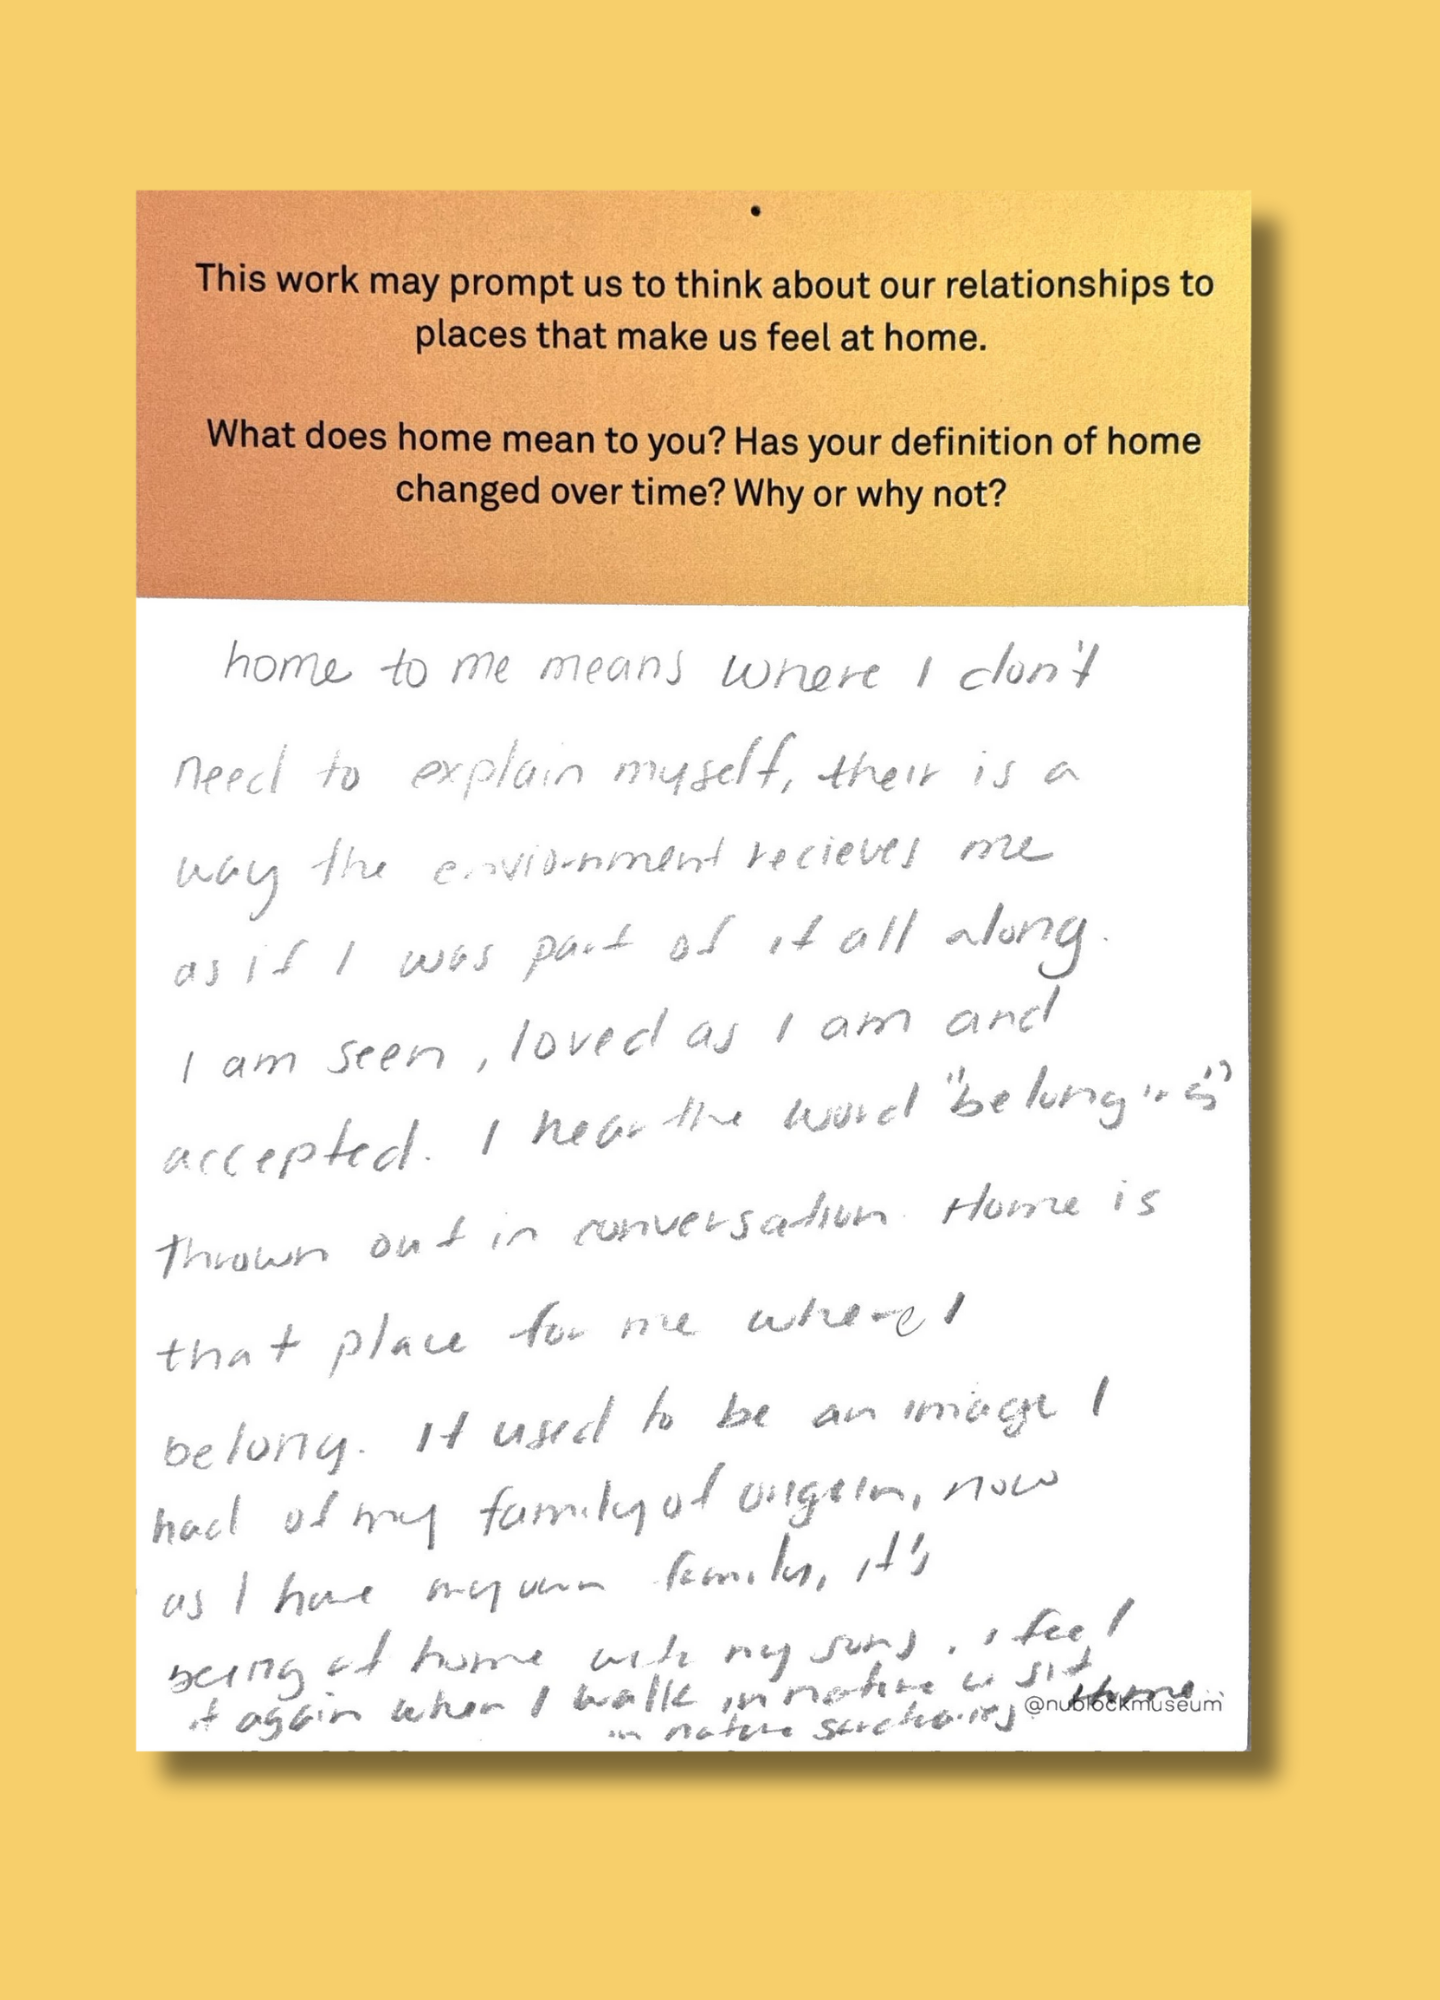 This work may prompt us to think about our relationships to
places that make us feel at home.
What does home mean to you? Has your definition of home
changed over time? Why or why not?
home to me means where I don't
need to explain myself, their is a
way the enviornment recieves me
as if I was part of it all along.
I am seen, loved as I am and
accepted. I hear the word "belonging"
thrown out in conversation. Home is
that place for me where I
belong. It used to be an image I
had of my family of origin, now
as I have my own family, it's
being at home with my sons. I feel
it again when I walk in nature sit
home
in nature
@nublockmuseum